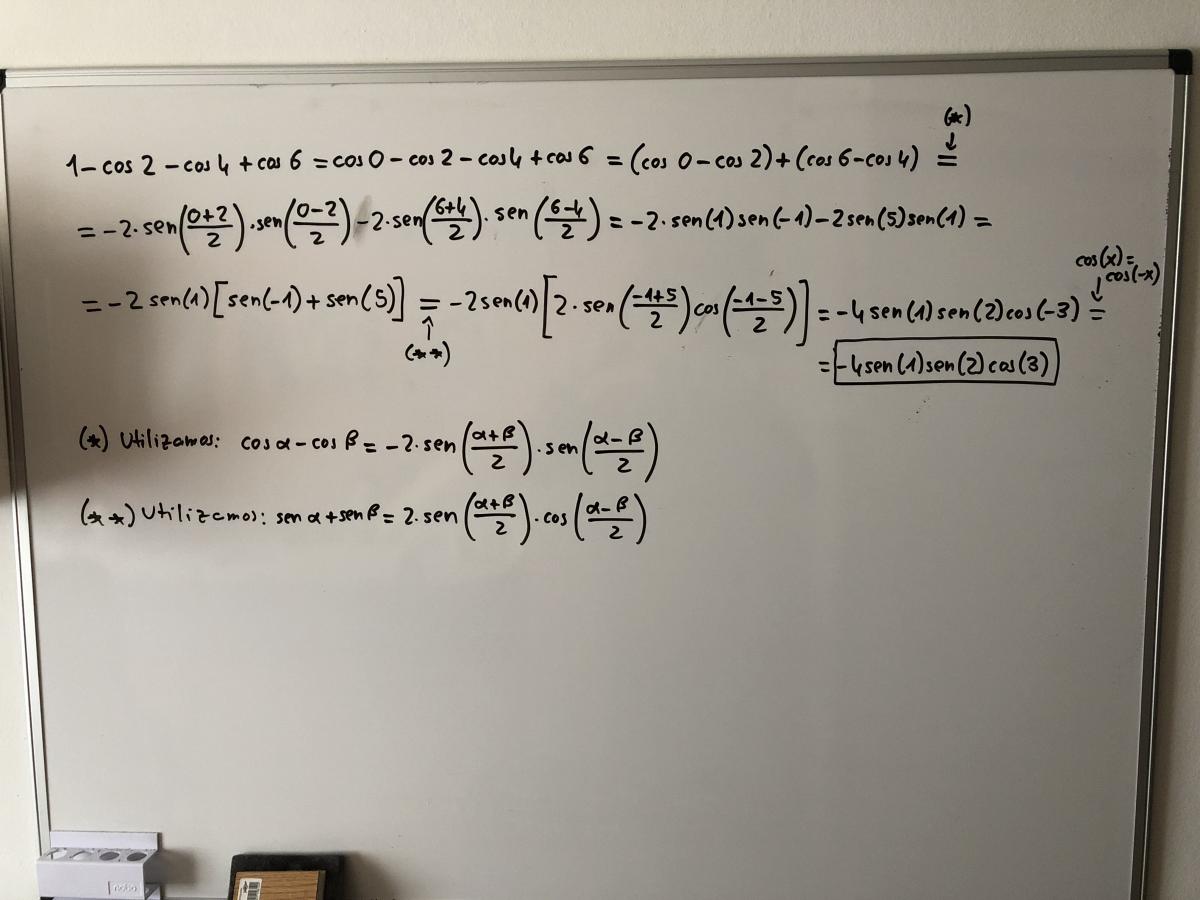 (*)
↓
1 - cos 2 - cos 4 + cos 6 = cos 0 - cos 2 - cos 4 + cos 6 = (cos 0 - cos 2) + (cos 6 - cos 4) =
= -2·sen((0+2)/2)·sen((0-2)/2) - 2·sen((6+4)/2)·sen((6-4)/2) = -2·sen(1)sen(-1) - 2sen(5)sen(1) =
cos(x) =
↓ cos(-x)
= -2 sen(1)[sen(-1) + sen(5)] = -2sen(1)[2·sen((-1+5)/2)cos((-1-5)/2)] = -4sen(1)sen(2)cos(-3) =
↑
(**)
= -4sen(1)sen(2)cos(3)
(*) Utilizamos: cos α - cos β = -2·sen((α+β)/2)·sen((α-β)/2)
(**) Utilizamos: sen α + sen β = 2·sen((α+β)/2)·cos((α-β)/2)
nobo